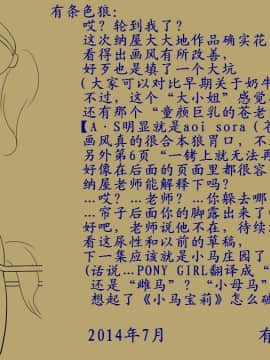 有条色狼:
哎？轮到我了？
这次纳屋大大地作品确实花
看得出画风有所改善，
好歹也是填了一个大坑
(大家可以对比早期关于奶牛
不过，这个“大小姐”感觉
还有那个“童颜巨乳的苍老
【A·S明显就是aoi sora（苍
画风真的很合本狼胃口，不
另外第6页“一铐上就无法再
好像在后面的页面里都很容
纳屋老师能解释下吗？
…哎？…老师？…你躲去哪
…帘子后面你的脚露出来了
好吧，老师说他不在，待会
看这尿性和以前的草稿，
下一集应该就是小马庄园了
(话说…PONY GIRL翻译成“
还是“雌马”？“小母马”
想起了《小马宝莉》怎么破
2014年7月
有